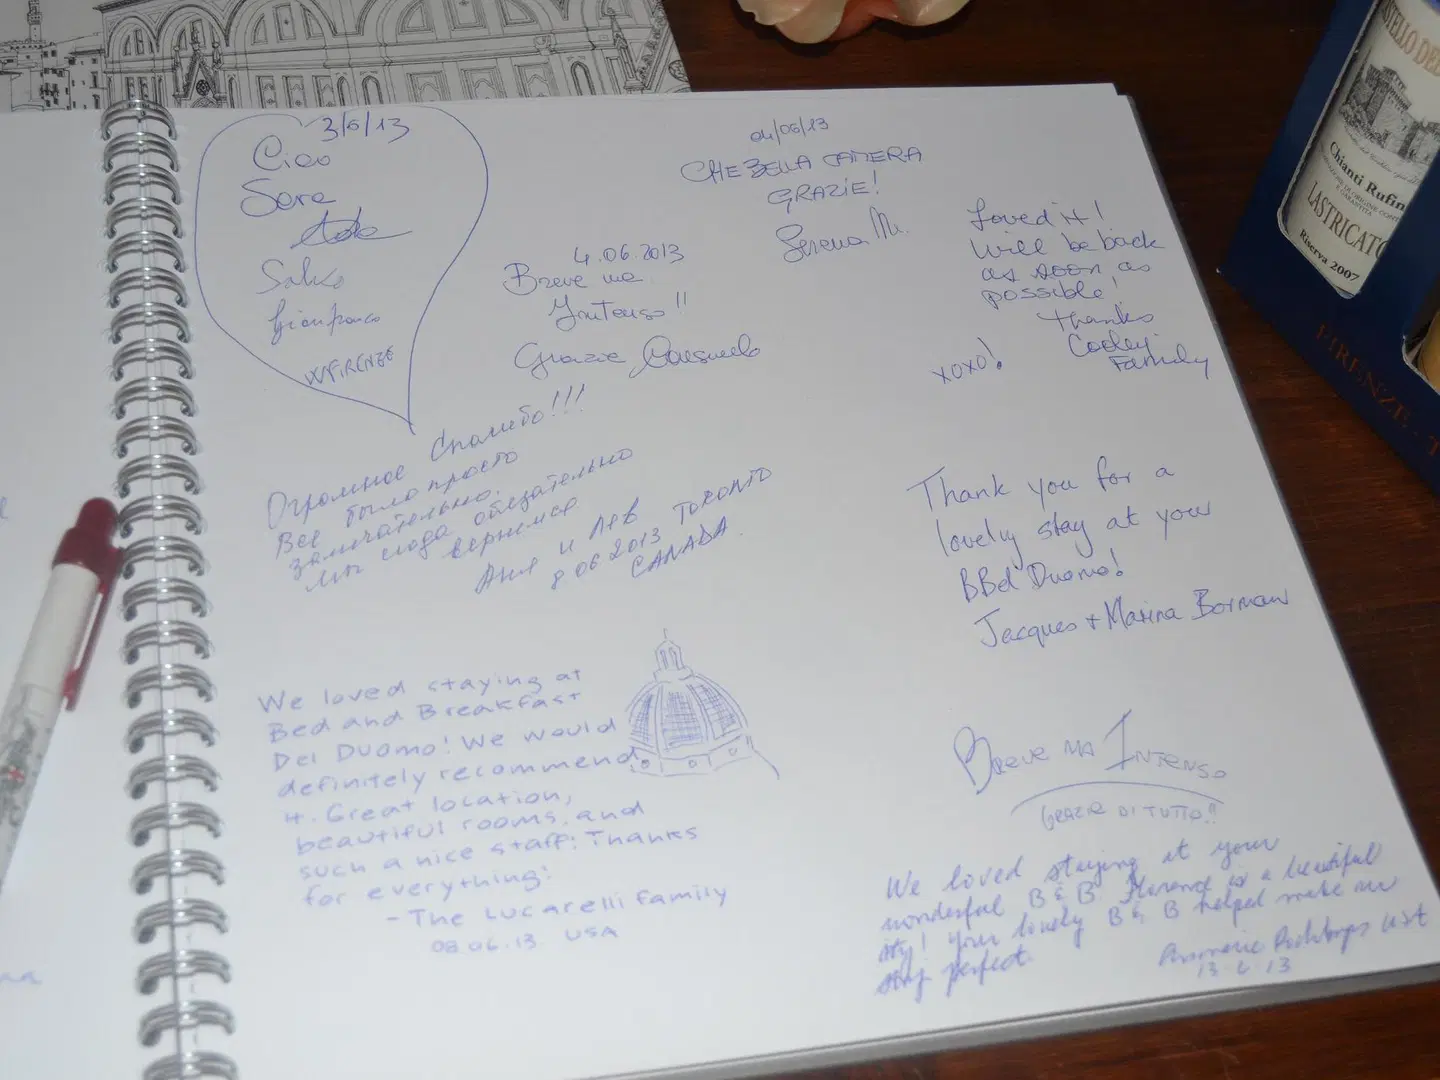 3/6/13
Ciao
Sara
Salvo
Gianfranco
W FIRENZE
04/06/13
CHE BELLA CAMERA
GRAZIE!
Serena M.
4.06.2013
Breve ma
Intenso!!
Grazie Consuelo
Loved it!
Will be back
as soon as
possible!
Thanks
Cooley
Family
xoxo!
Огромное Спасибо!!!
Все было просто
замечательно.
Мы сюда обязательно
вернемся
Аня и Лев
8 06 2013 TORONTO
CANADA
Thank you for a
lovely stay at your
BBdel Duomo!
Jacques + Marina Borman
We loved staying at
Bed and Breakfast
Del Duomo! We would
definitely recommend
it. Great location,
beautiful rooms, and
such a nice staff! Thanks
for everything!
- The Lucarelli Family
08.06.13 USA
BREVE MA INTENSO
GRAZIE DI TUTTO!!
We loved staying at your
wonderful B & B. Florence is a beautiful
city! Your lovely B & B helped make our
stay perfect.
USA
13.6.13
CASTELLO DEL
Chianti Rufina
LASTRICATO
Riserva 2007
FIRENZE - T